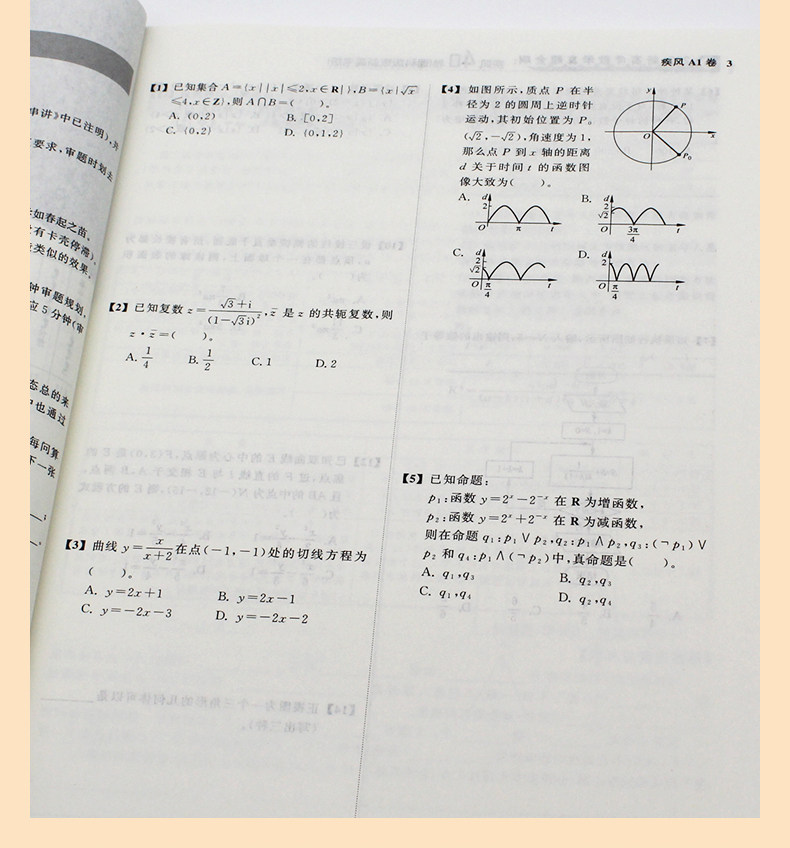 疾风 AI 卷 3
串讲》中已注明)，先
要求，审题时划去
如春起之苗、
有卡壳停滞)、
类似的效果。
钟审题规划，
应5分钟(审
态总的来
也通过
每问算
下一张
【1】已知集合 A={x||x|≤2,x∈R|},B={x|√x
≤4,x∈Z},则 A∩B=( )。
A. (0,2) B. [0,2]
C. {0,2} D. {0,1,2}
【2】已知复数 z=(√3+i)/(1-√3i)²,z̄ 是 z 的共轭复数,则
z·z̄=( )。
A. 1/4 B. 1/2 C. 1 D. 2
【3】曲线 y=x/(x+2) 在点(-1,-1)处的切线方程为
( )。
A. y=2x+1 B. y=2x-1
C. y=-2x-3 D. y=-2x-2
【4】如图所示,质点 P 在半
径为 2 的圆周上逆时针
运动,其初始位置为 P₀
(√2,-√2),角速度为 1,
那么点 P 到 x 轴的距离
d 关于时间 t 的函数图
像大致为( )。
y P O x P₀
A. d 2 O π t B. d 2 √2 O 3π/4 t
C. d 2 √2 O π/4 t D. d 2 O π/4 t
【5】已知命题:
p₁:函数 y=2ˣ-2⁻ˣ 在 R 为增函数,
p₂:函数 y=2ˣ+2⁻ˣ 在 R 为减函数,
则在命题 q₁:p₁∨p₂,q₂:p₁∧p₂,q₃:(¬p₁)∨
p₂ 和 q₄:p₁∧(¬p₂)中,真命题是( )。
A. q₁,q₃ B. q₂,q₃
C. q₁,q₄ D. q₂,q₄